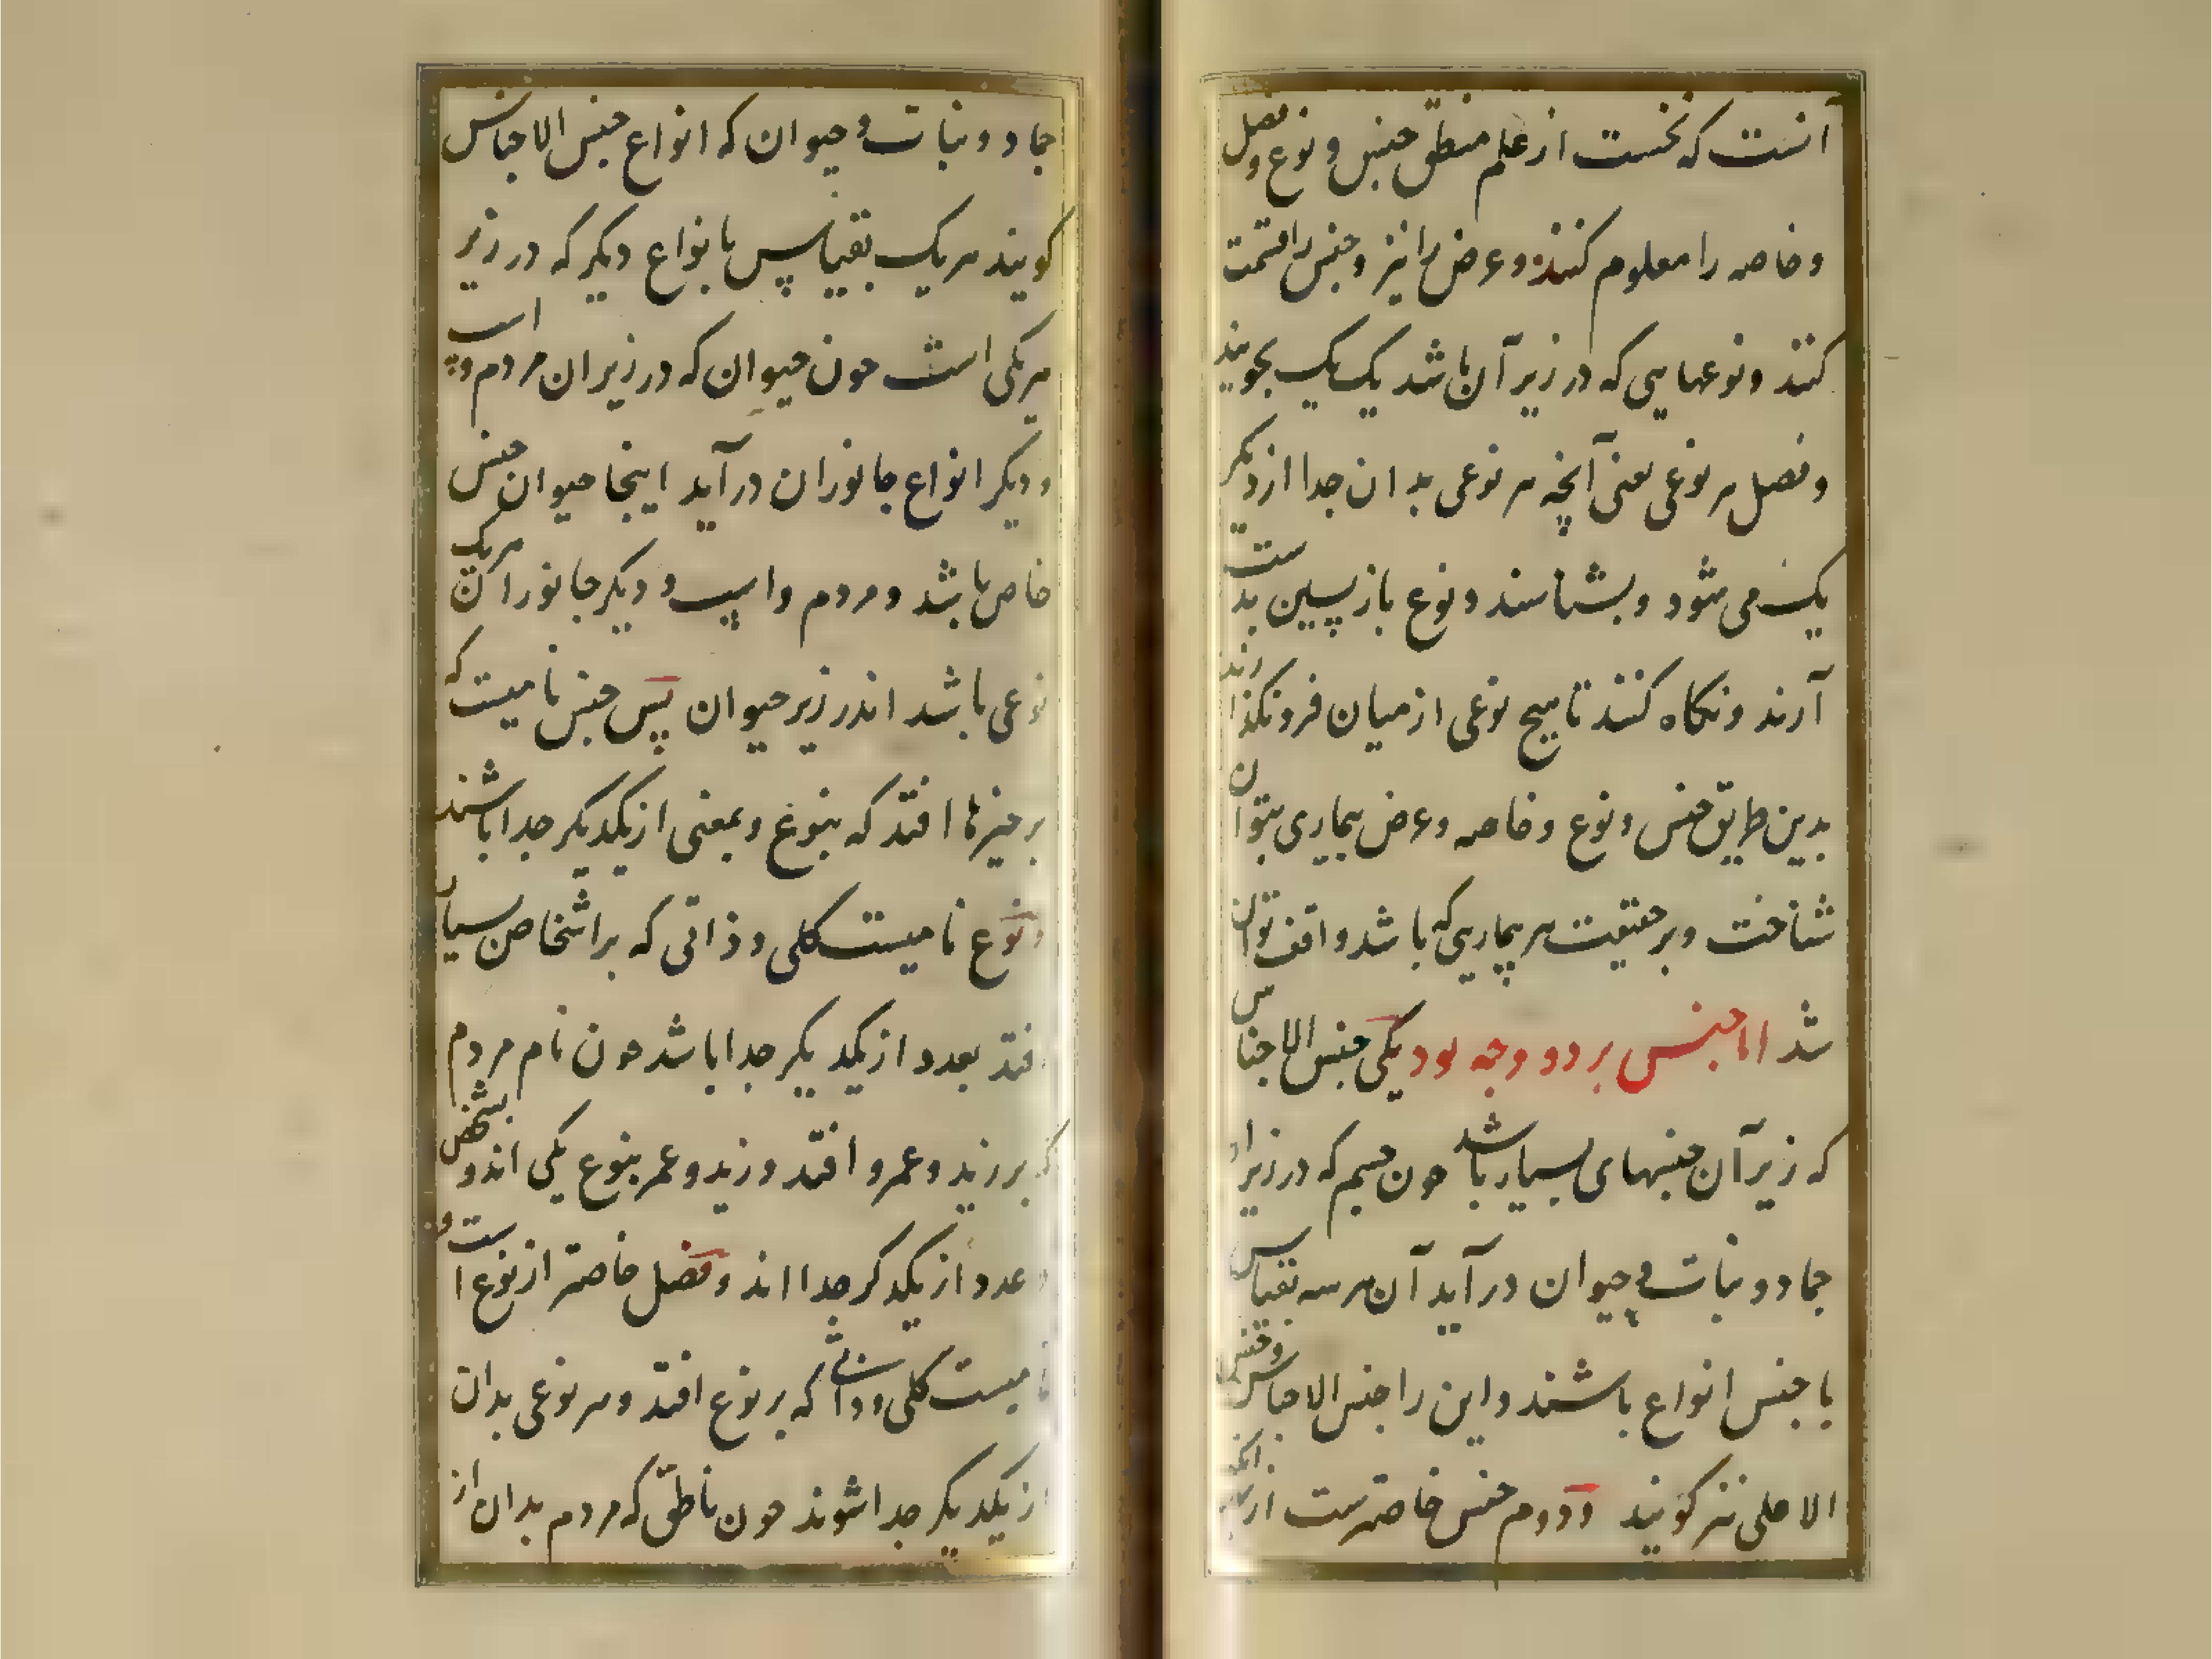 آنست که نخست از علم منطق جنس و نوع و فصل
و خاصه را معلوم کنند و عرض را نیز و جنس را قسمت
کنند و نوعهایی که در زیر آن باشد یک یک بجویند
و فصل هر نوعی یعنی آنچه هر نوعی بدان جدا از دیکر
یک می شود و بشناسند و نوع بازپسین بدست
آرند و نکاه کنند تا هیچ نوعی از میان فرو نکذارند
بدین طریق جنس و نوع و خاصه و عرض بیماری بتوان
شناخت و بر حقیقت هر بیماریی که باشد واقف توان
شد اما جنس بر دو وجه بود یکی جنس الاجناس
که زیر آن جنسهای بسیار باشد چون جسم که در زیر او
جماد و نبات و حیوان در آید آن هر سه بقیاس
با جنس انواع باشند و این را جنس الاجناس و جنس
الاعلی نیز کویند و دوم جنس خاصترست از
جماد و نبات و حیوان که انواع جنس الاجناس
کویند هر یک بقیاس با نواع دیکر که در زیر
هر یکی است چون حیوان که در زیر ان مردم و اسپ
و دیکر انواع جانوران در آید اینجا حیوان جنس
خاص باشد و مردم و اسپ و دیکر جانوران هر یک
نوعی باشد اندر زیر حیوان پس جنس نامیست که
بر چیزها افتد که بنوع و بمعنی از یکدیکر جدا باشند
و نوع نامیست کلی و ذاتی که بر اشخاص بسیار
افتد بعدد از یکدیکر جدا باشد چون نام مردم
که بر زید و عمرو افتد و زید و عمر بنوع یکی اند و بشخص
و عدد از یکدکر جدا اند و فصل خاصتر از نوع است و
نامیست کلی و ذاتی که بر نوع افتد و هر نوعی بدان
از یکدیکر جدا شوند چون ناطق که مردم بدان از